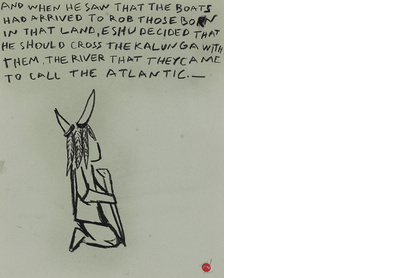 AND WHEN HE SAW THAT THE BOATS
HAD ARRIVED TO ROB THOSE BORN
IN THAT LAND, ESHU DECIDED THAT
HE SHOULD CROSS THE KALUNGA WITH
THEM. THE RIVER THAT THEY CAME
TO CALL THE ATLANTIC.—